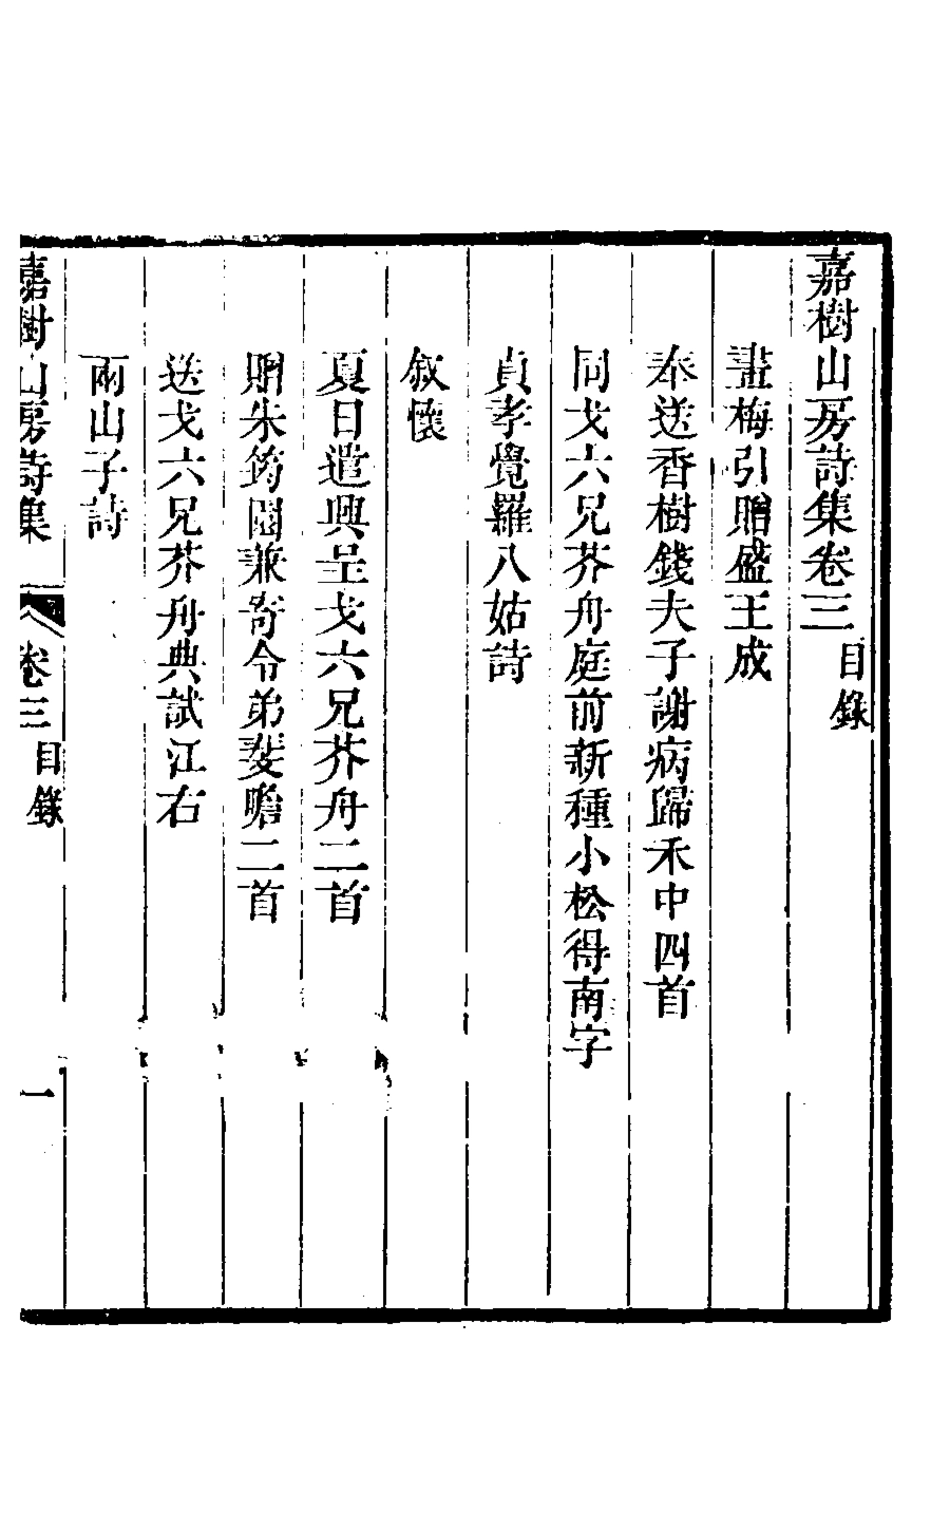 嘉樹山房詩集卷三目錄
畫梅引贈盛王成
奉送香樹錢夫子謝病歸禾中四首
同戈六兄芥舟庭前新種小松得南字
貞孝覺羅八姑詩
敘懷
夏日遣興呈戈六兄芥舟二首
贈朱筠園兼寄令弟斐瞻二首
送戈六兄芥舟典試江右
兩山子詩
嘉樹山房詩集 卷三目錄 一